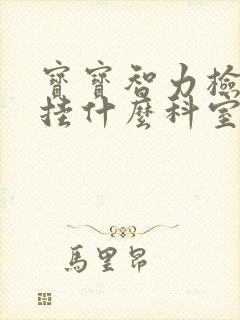 寶寶智力檢
挂什麼科室
馬里昂